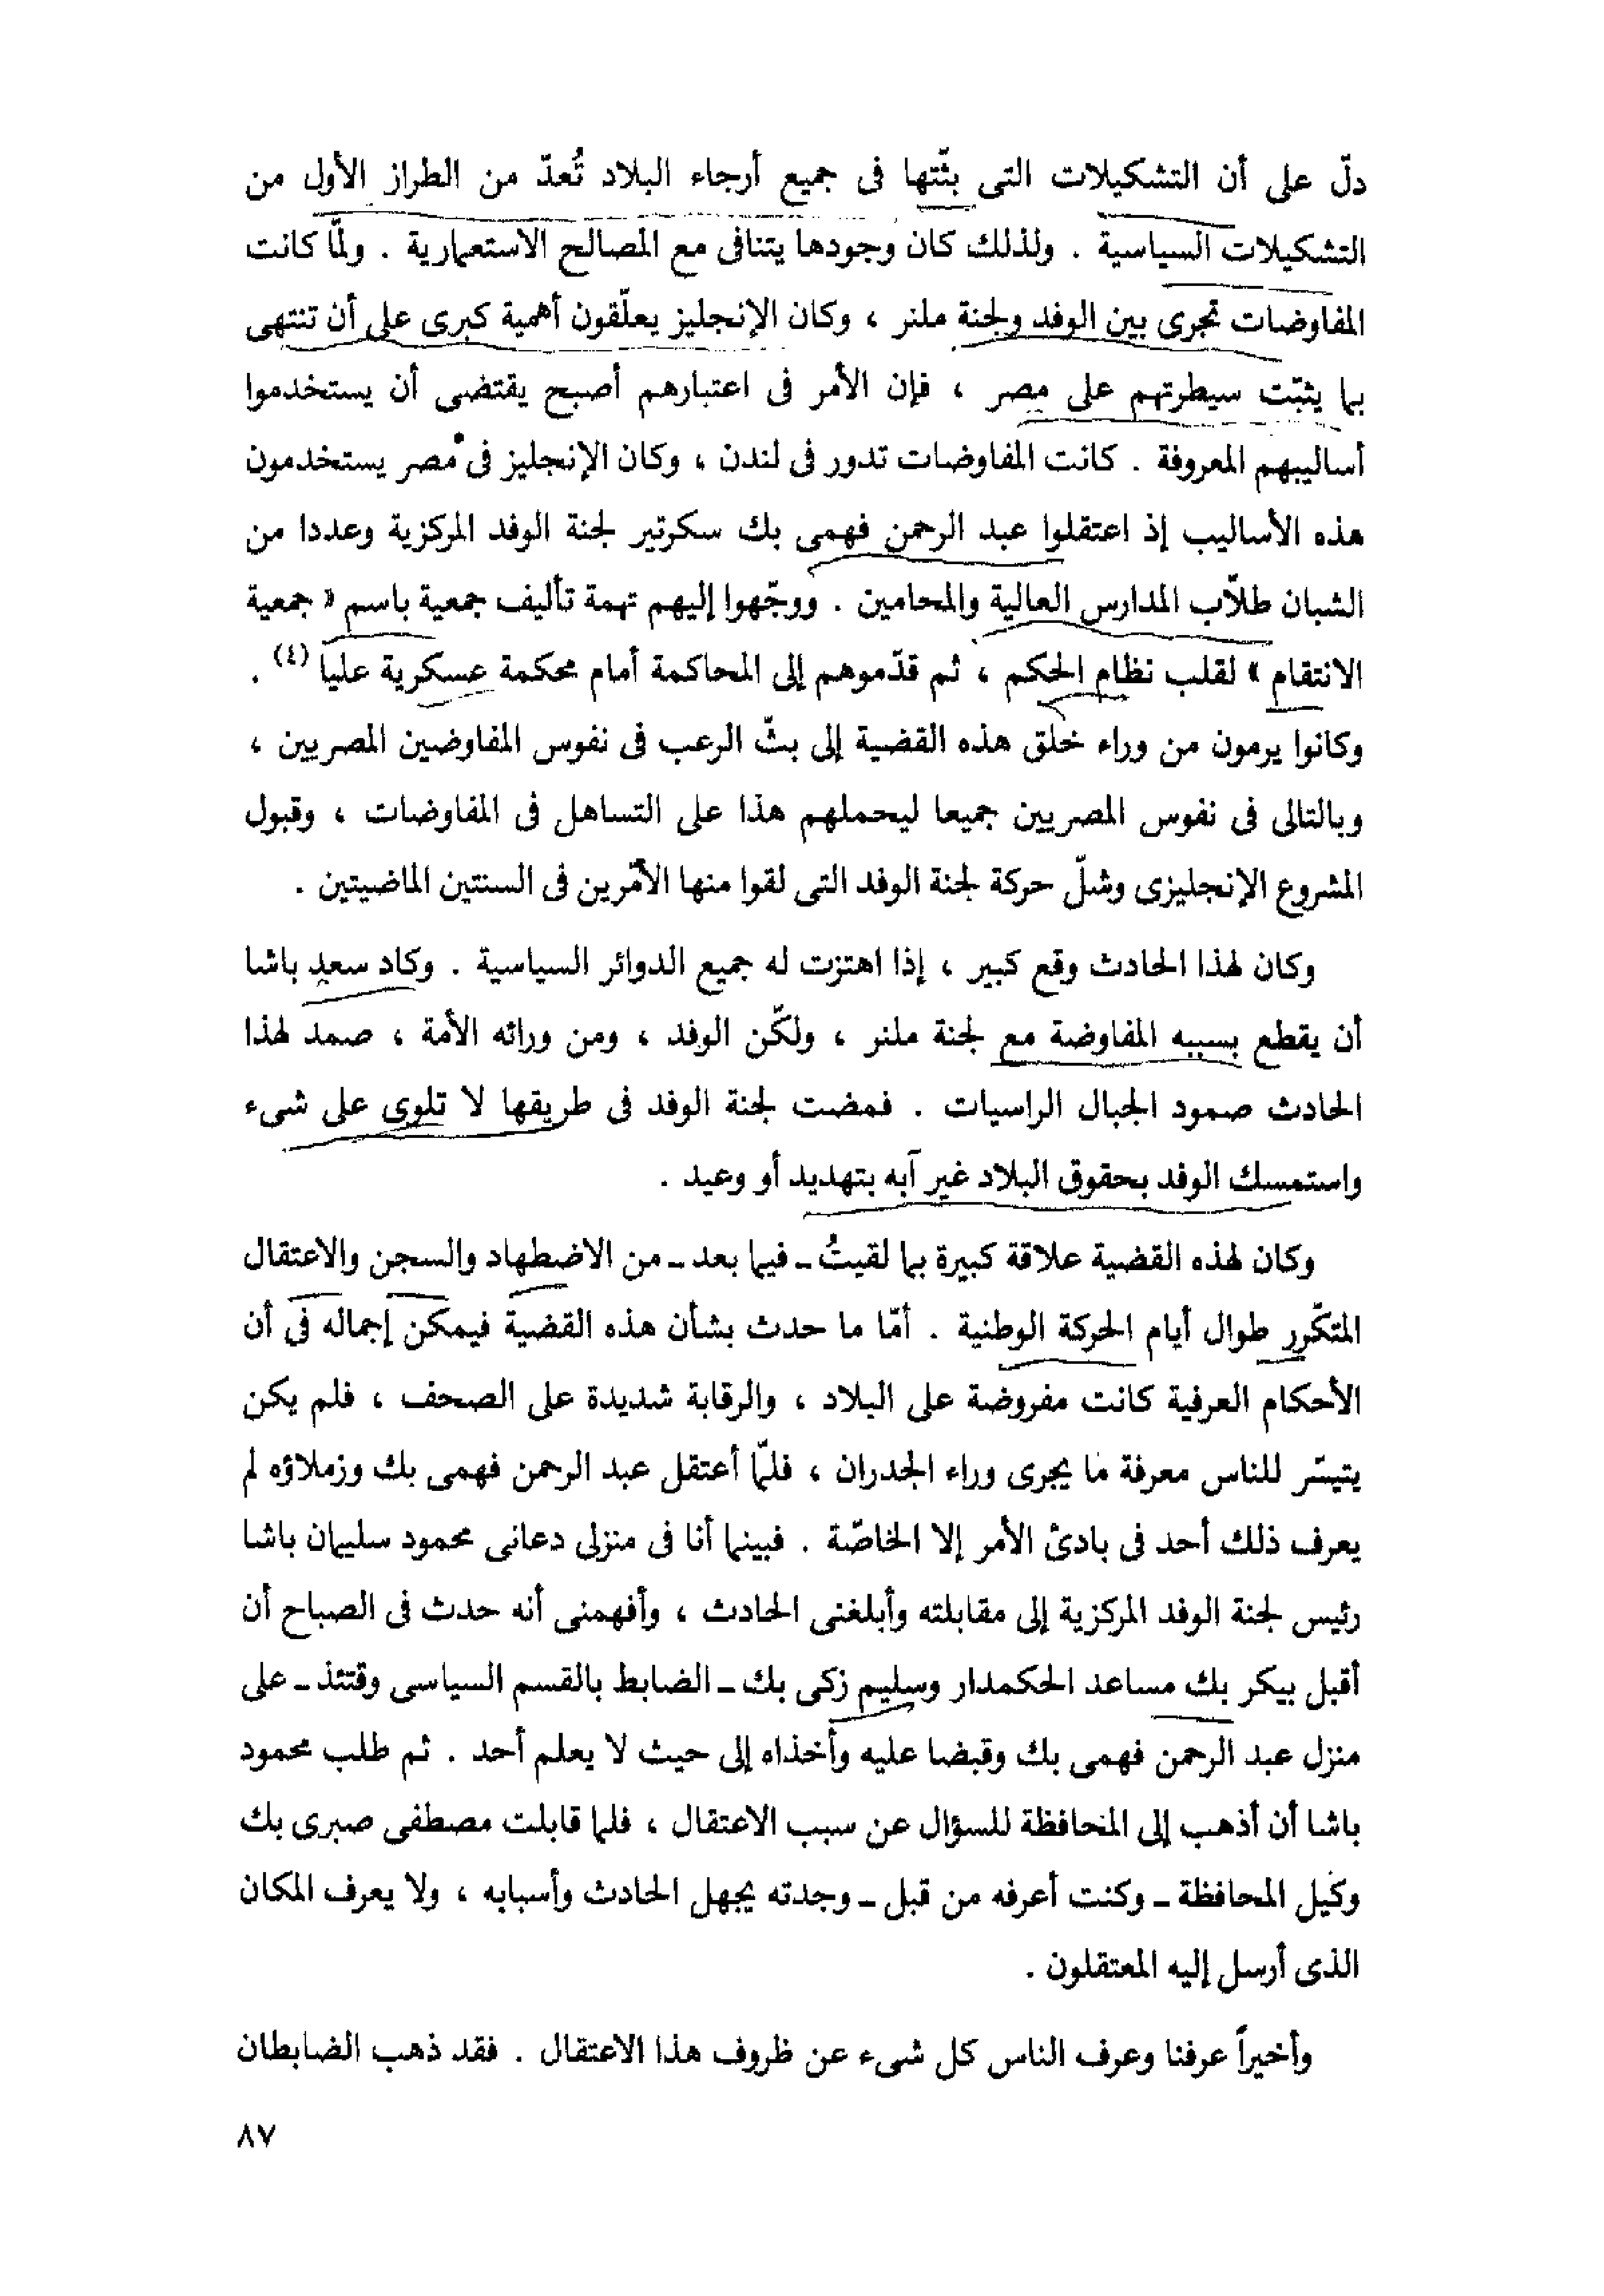 دلّ على أن التشكيلات التى بثّتها فى جميع أرجاء البلاد تُعدّ من الطراز الأول من
التشكيلات السياسية . ولذلك كان وجودها يتنافى مع المصالح الاستعمارية . ولمّا كانت
المفاوضات تجرى بين الوفد ولجنة ملنر ، وكان الإنجليز يعلّقون أهمية كبرى على أن تنتهى
بما يثبّت سيطرتهم على مصر ، فإن الأمر فى اعتبارهم أصبح يقتضى أن يستخدموا
أساليبهم المعروفة . كانت المفاوضات تدور فى لندن ، وكان الإنجليز فى مصر يستخدمون
هذه الأساليب إذ اعتقلوا عبد الرحمن فهمى بك سكرتير لجنة الوفد المركزية وعددا من
الشبان طلاّب المدارس العالية والمحامين . ووجّهوا إليهم تهمة تأليف جمعية باسم « جمعية
الانتقام » لقلب نظام الحكم ، ثم قدّموهم إلى المحاكمة أمام محكمة عسكرية عليا (٤) .
وكانوا يرمون من وراء خلق هذه القضية إلى بثّ الرعب فى نفوس المفاوضين المصريين ،
وبالتالى فى نفوس المصريين جميعا ليحملهم هذا على التساهل فى المفاوضات ، وقبول
المشروع الإنجليزى وشلّ حركة لجنة الوفد التى لقوا منها الأمّرين فى السنتين الماضيتين .
وكان لهذا الحادث وقع كبير ، إذا اهتزت له جميع الدوائر السياسية . وكاد سعد باشا
أن يقطع بسببه المفاوضة مع لجنة ملنر ، ولكّن الوفد ، ومن ورائه الأمة ، صمد لهذا
الحادث صمود الجبال الراسيات . فمضت لجنة الوفد فى طريقها لا تلوى على شىء
واستمسك الوفد بحقوق البلاد غير آبه بتهديد أو وعيد .
وكان لهذه القضية علاقة كبيرة بما لقيتُ ـ فيما بعد ـ من الاضطهاد والسجن والاعتقال
المتكّرر طوال أيام الحركة الوطنية . أمّا ما حدث بشأن هذه القضية فيمكن إجماله فى أن
الأحكام العرفية كانت مفروضة على البلاد ، والرقابة شديدة على الصحف ، فلم يكن
يتيسّر للناس معرفة ما يجرى وراء الجدران ، فلمّا أعتقل عبد الرحمن فهمى بك وزملاؤه لم
يعرف ذلك أحد فى بادئ الأمر إلا الخاصّة . فبينما أنا فى منزلى دعانى محمود سليمان باشا
رئيس لجنة الوفد المركزية إلى مقابلته وأبلغنى الحادث ، وأفهمنى أنه حدث فى الصباح أن
أقبل بيكر بك مساعد الحكمدار وسليم زكى بك ـ الضابط بالقسم السياسى وقتئذ ـ على
منزل عبد الرحمن فهمى بك وقبضا عليه وأخذاه إلى حيث لا يعلم أحد . ثم طلب محمود
باشا أن أذهب إلى المحافظة للسؤال عن سبب الاعتقال ، فلما قابلت مصطفى صبرى بك
وكيل المحافظة ـ وكنت أعرفه من قبل ـ وجدته يجهل الحادث وأسبابه ، ولا يعرف المكان
الذى أرسل إليه المعتقلون .
وأخيراً عرفنا وعرف الناس كل شىء عن ظروف هذا الاعتقال . فقد ذهب الضابطان
٨٧